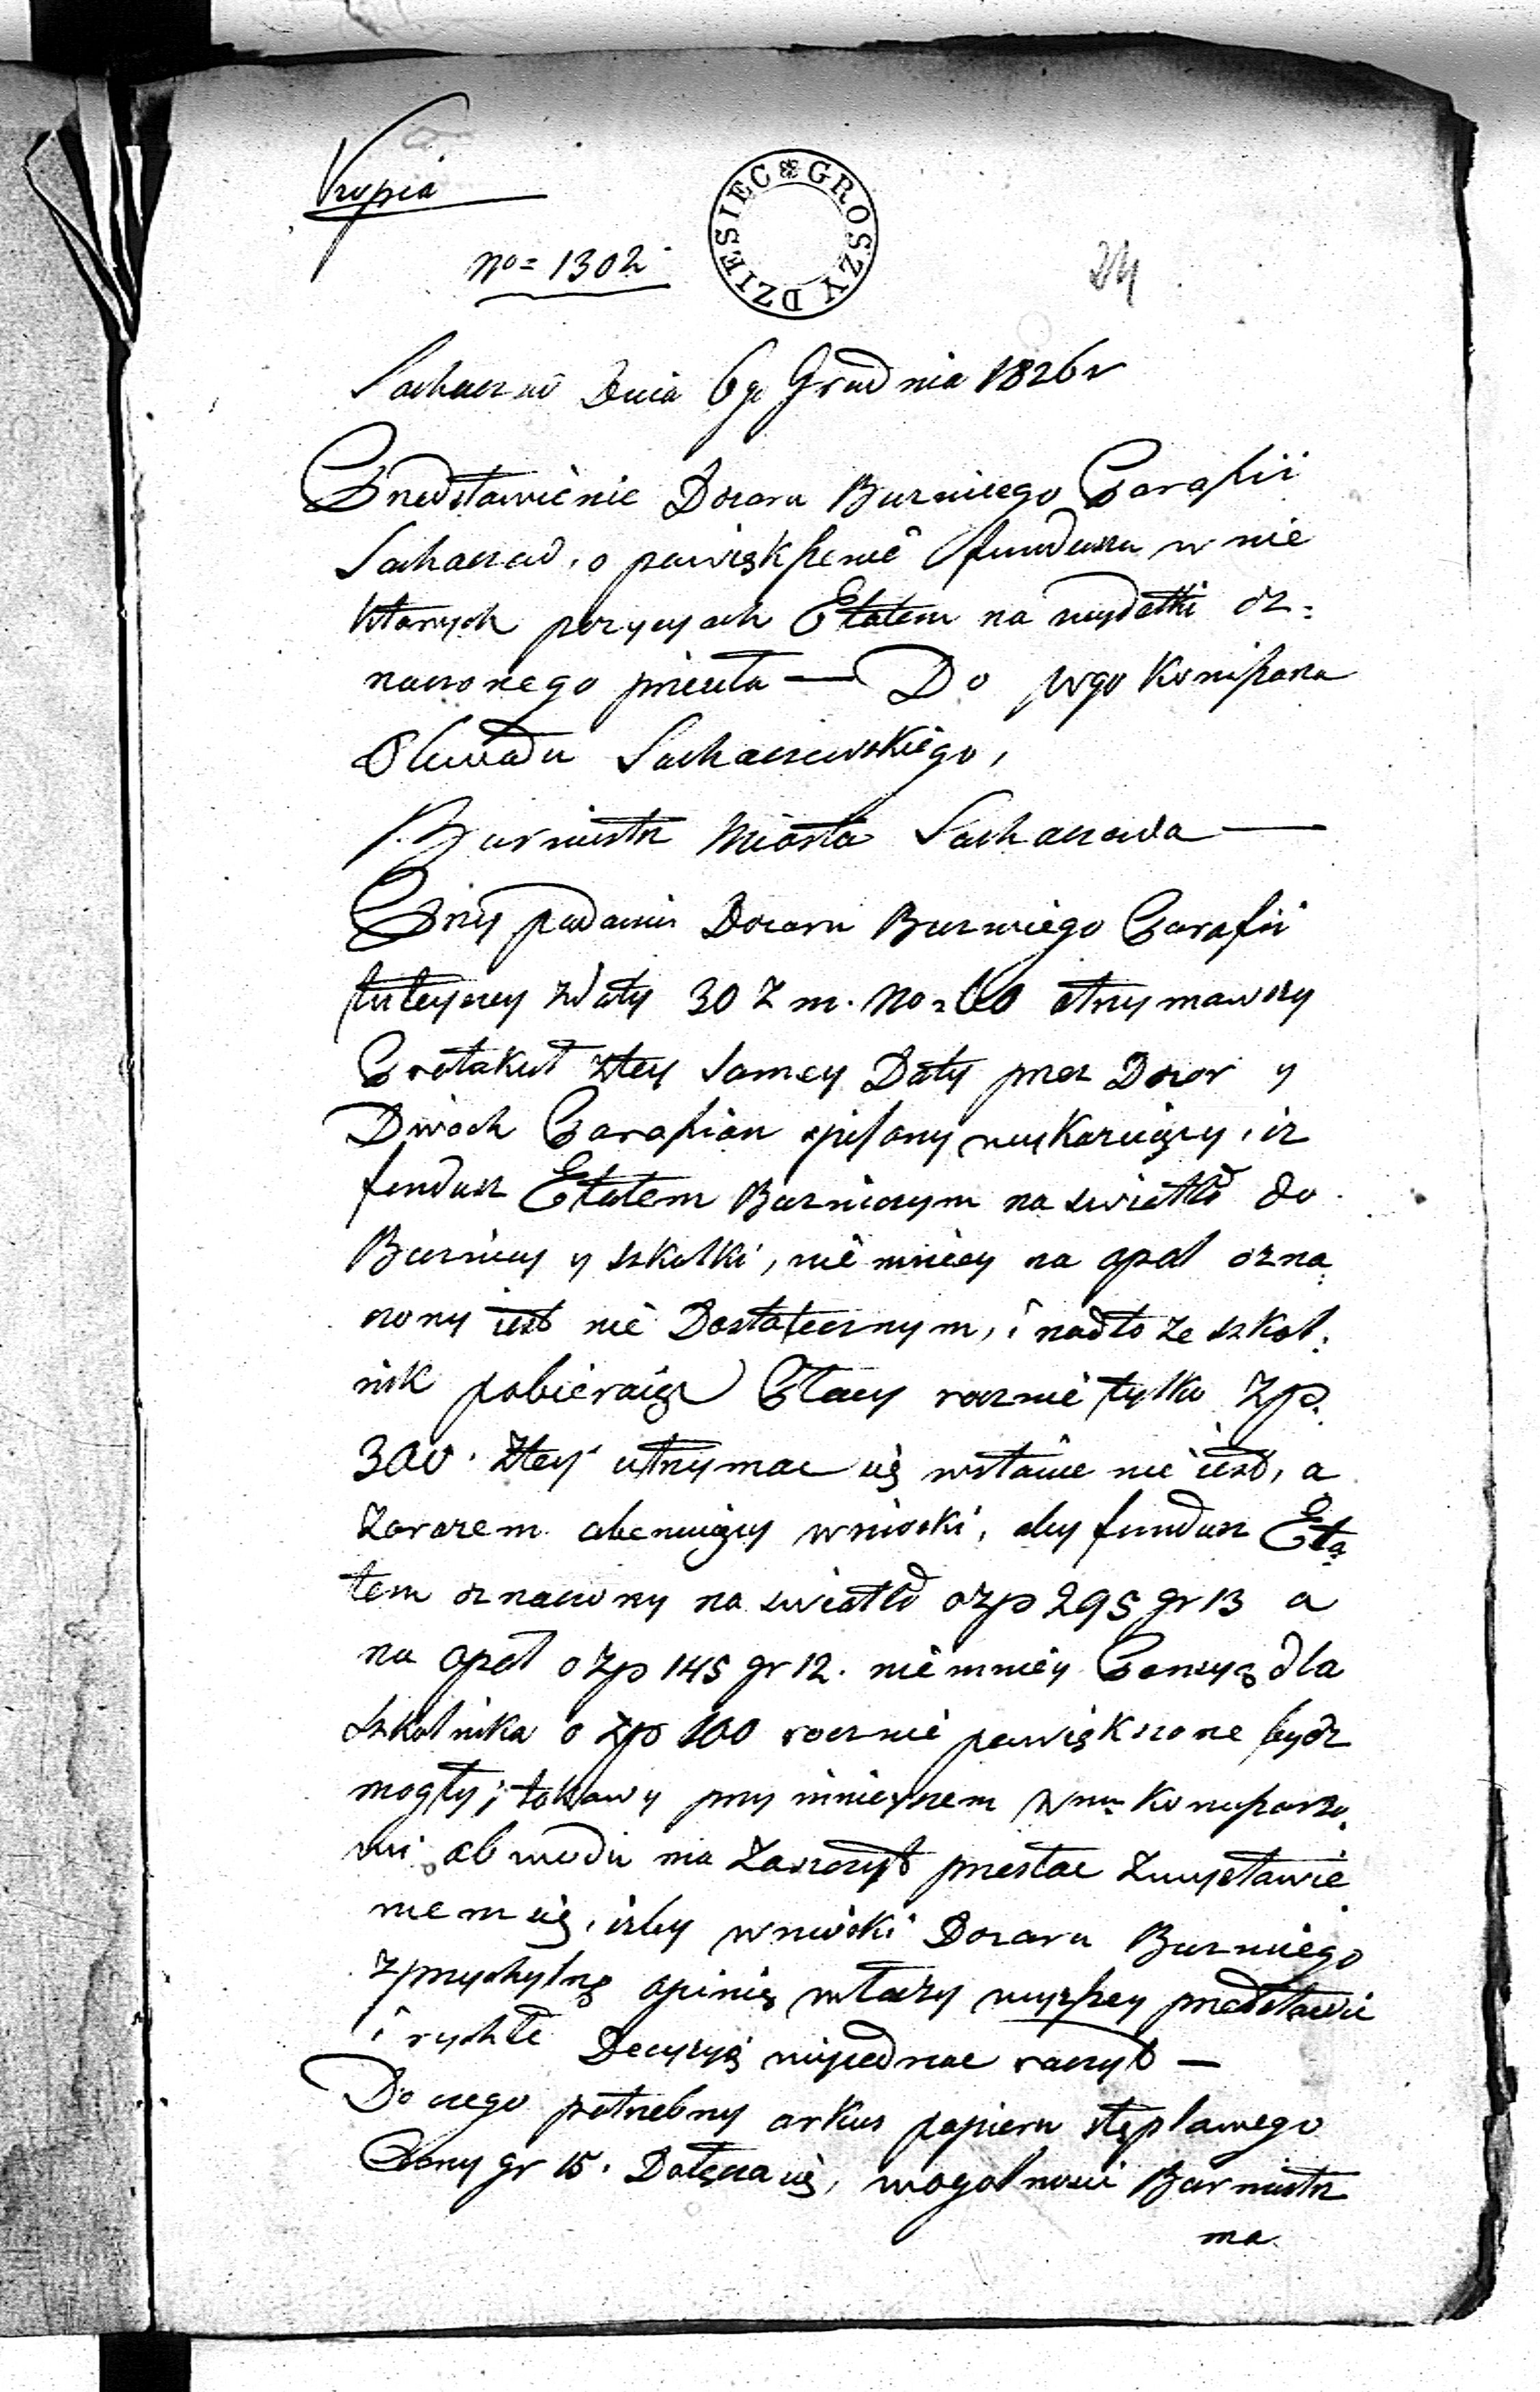 Kopia
No = 1302
DZIESIEC GROSZY
24
Sochaczew Dnia 6go Grudnia 1826 r
Przedstawienie Dozoru Bużniczego Parafii
Sochaczew, o powiększenie funduszu w nie
ktorych pozycyach Etatem na wydatki oz=
naczonego przeuta — Do Wgo Komissarza
Obwodu Sochaczewskiego,
Burmistrz Miasta Sochaczewa —
Przy podaniu Dozoru Bużniczego Parafii
tuteyszey zdaty 30 z. m. No 60 otrzymawszy
Protokuł ztey samey Daty przez Dozor y
Dwoch Parafian spisany wykazuiący, iz
fundusz Etatem Bużniczym na swiatło do
Bużnicy y szkułki, nie mniey na opał ozna
czony iest nie Dostatecznym, i nadto ze szkol=
nik pobieraiąc Płacy rocznie tylko zp.
300. ztey utrzymac się wstanie nie iest, a
zarazem obeymuiący wnioski, aby fundusz Eta
tem oznaczony na swiatło o zp 295 gr 13 a
na opał o zp 145 gr 12. nie mniey Pensyą dla
szkolnika o zp 100 rocznie powiększone bydz
mogły; takowy przy ninieyszem Wmu Kommissarzo
wi obwodu ma zaszczyt przesłac zwystawie
niem się, izby wnioski Dozoru Bużniczego
zprzychylną opinią władzy wyższey przedstawic
i rychłe Decyzyą wyiednac raczył —
Do czego potrzebny arkusz papieru stęplowego
Ceny gr 15. Dołącza się, wogolnosci Burmistrz
ma